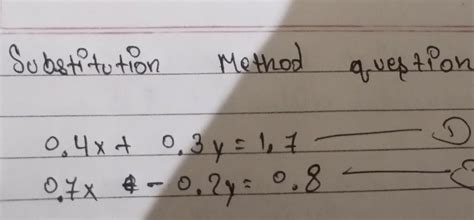 Substitution Method question
0.4x + 0.3y = 1.7 ——— ①
0.7x - 0.2y = 0.8 ———